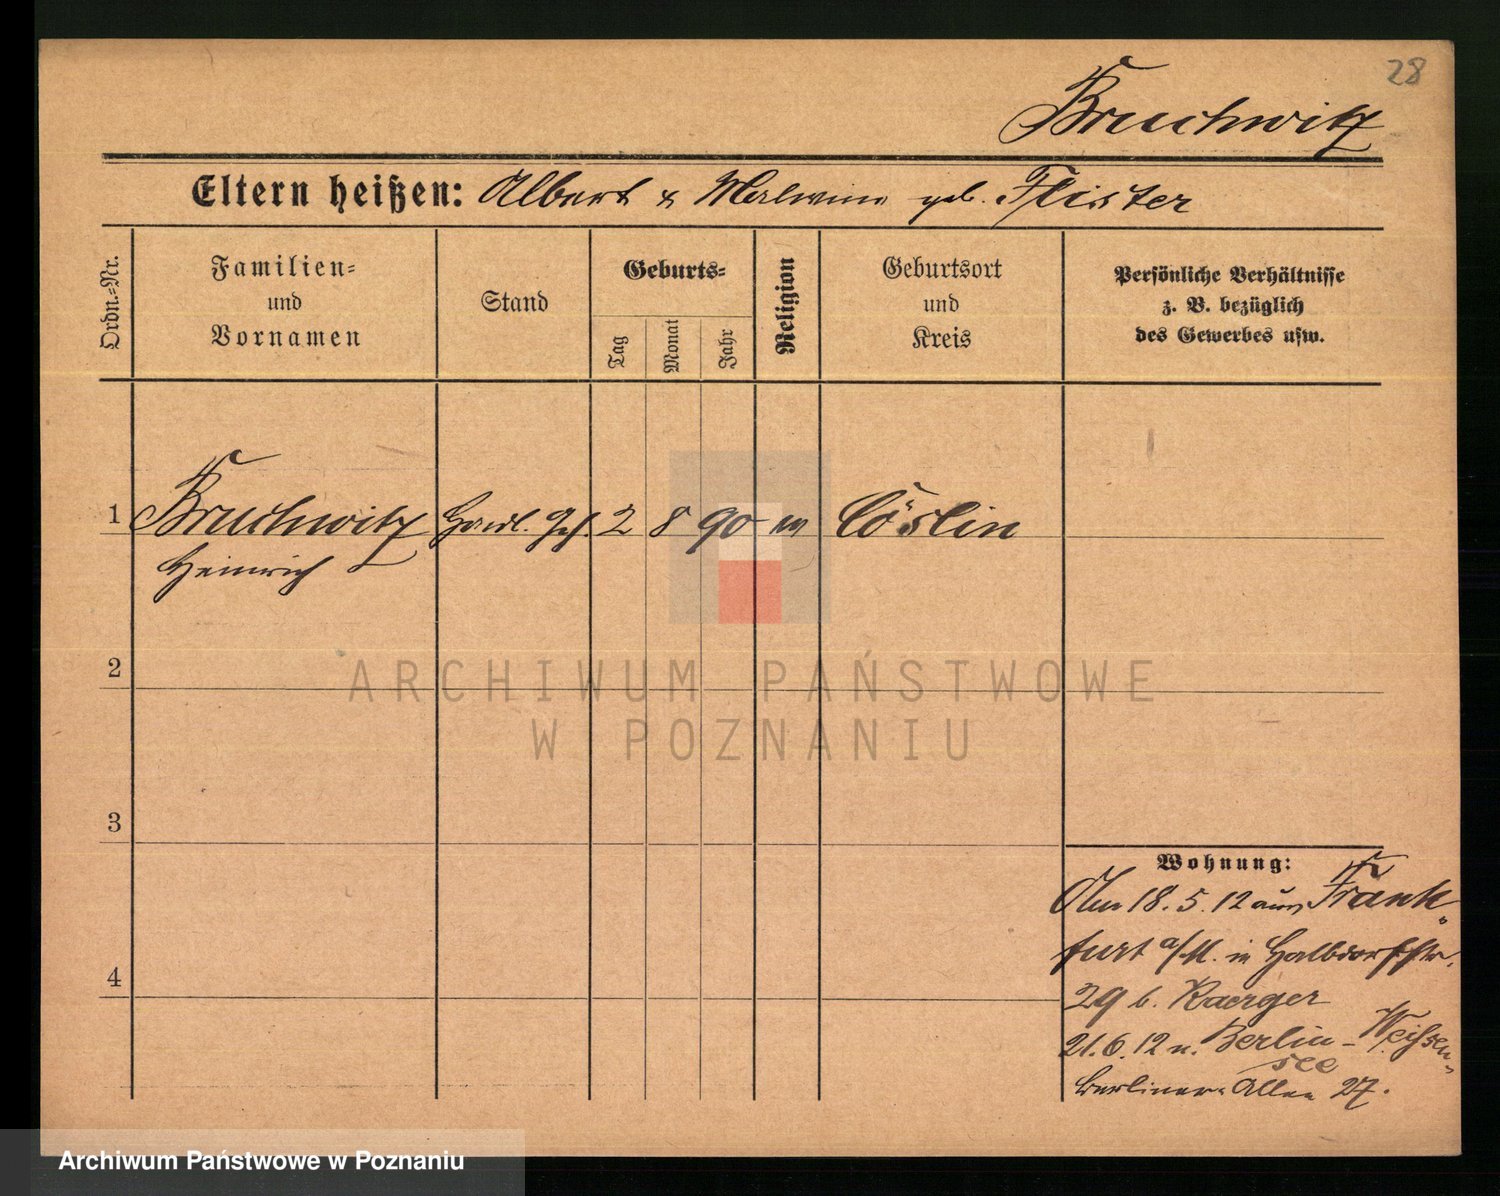 28
Bruchwitz
Eltern heißen: Albert & Malwine geb. Flister
Ordn.=Nr.
Familien=
und
Vornamen
Stand
Geburts=
Tag
Monat
Jahr
Religion
Geburtsort
und
Kreis
Persönliche Verhältnisse
z. B. bezüglich
des Gewerbes usw.
1 Bruchwitz Handl. Geh. 2 8 90 m Cöslin
Heinrich
2
3
4
ARCHIWUM PAŃSTWOWE
W POZNANIU
Wohnung:
18.5.12 aus Frank-
furt a/M. in Halbdorfstr.
29 b. Kaerger
21.6.12 n. Berlin-Weißen-
see
Berliner Allee 27.
Archiwum Państwowe w Poznaniu